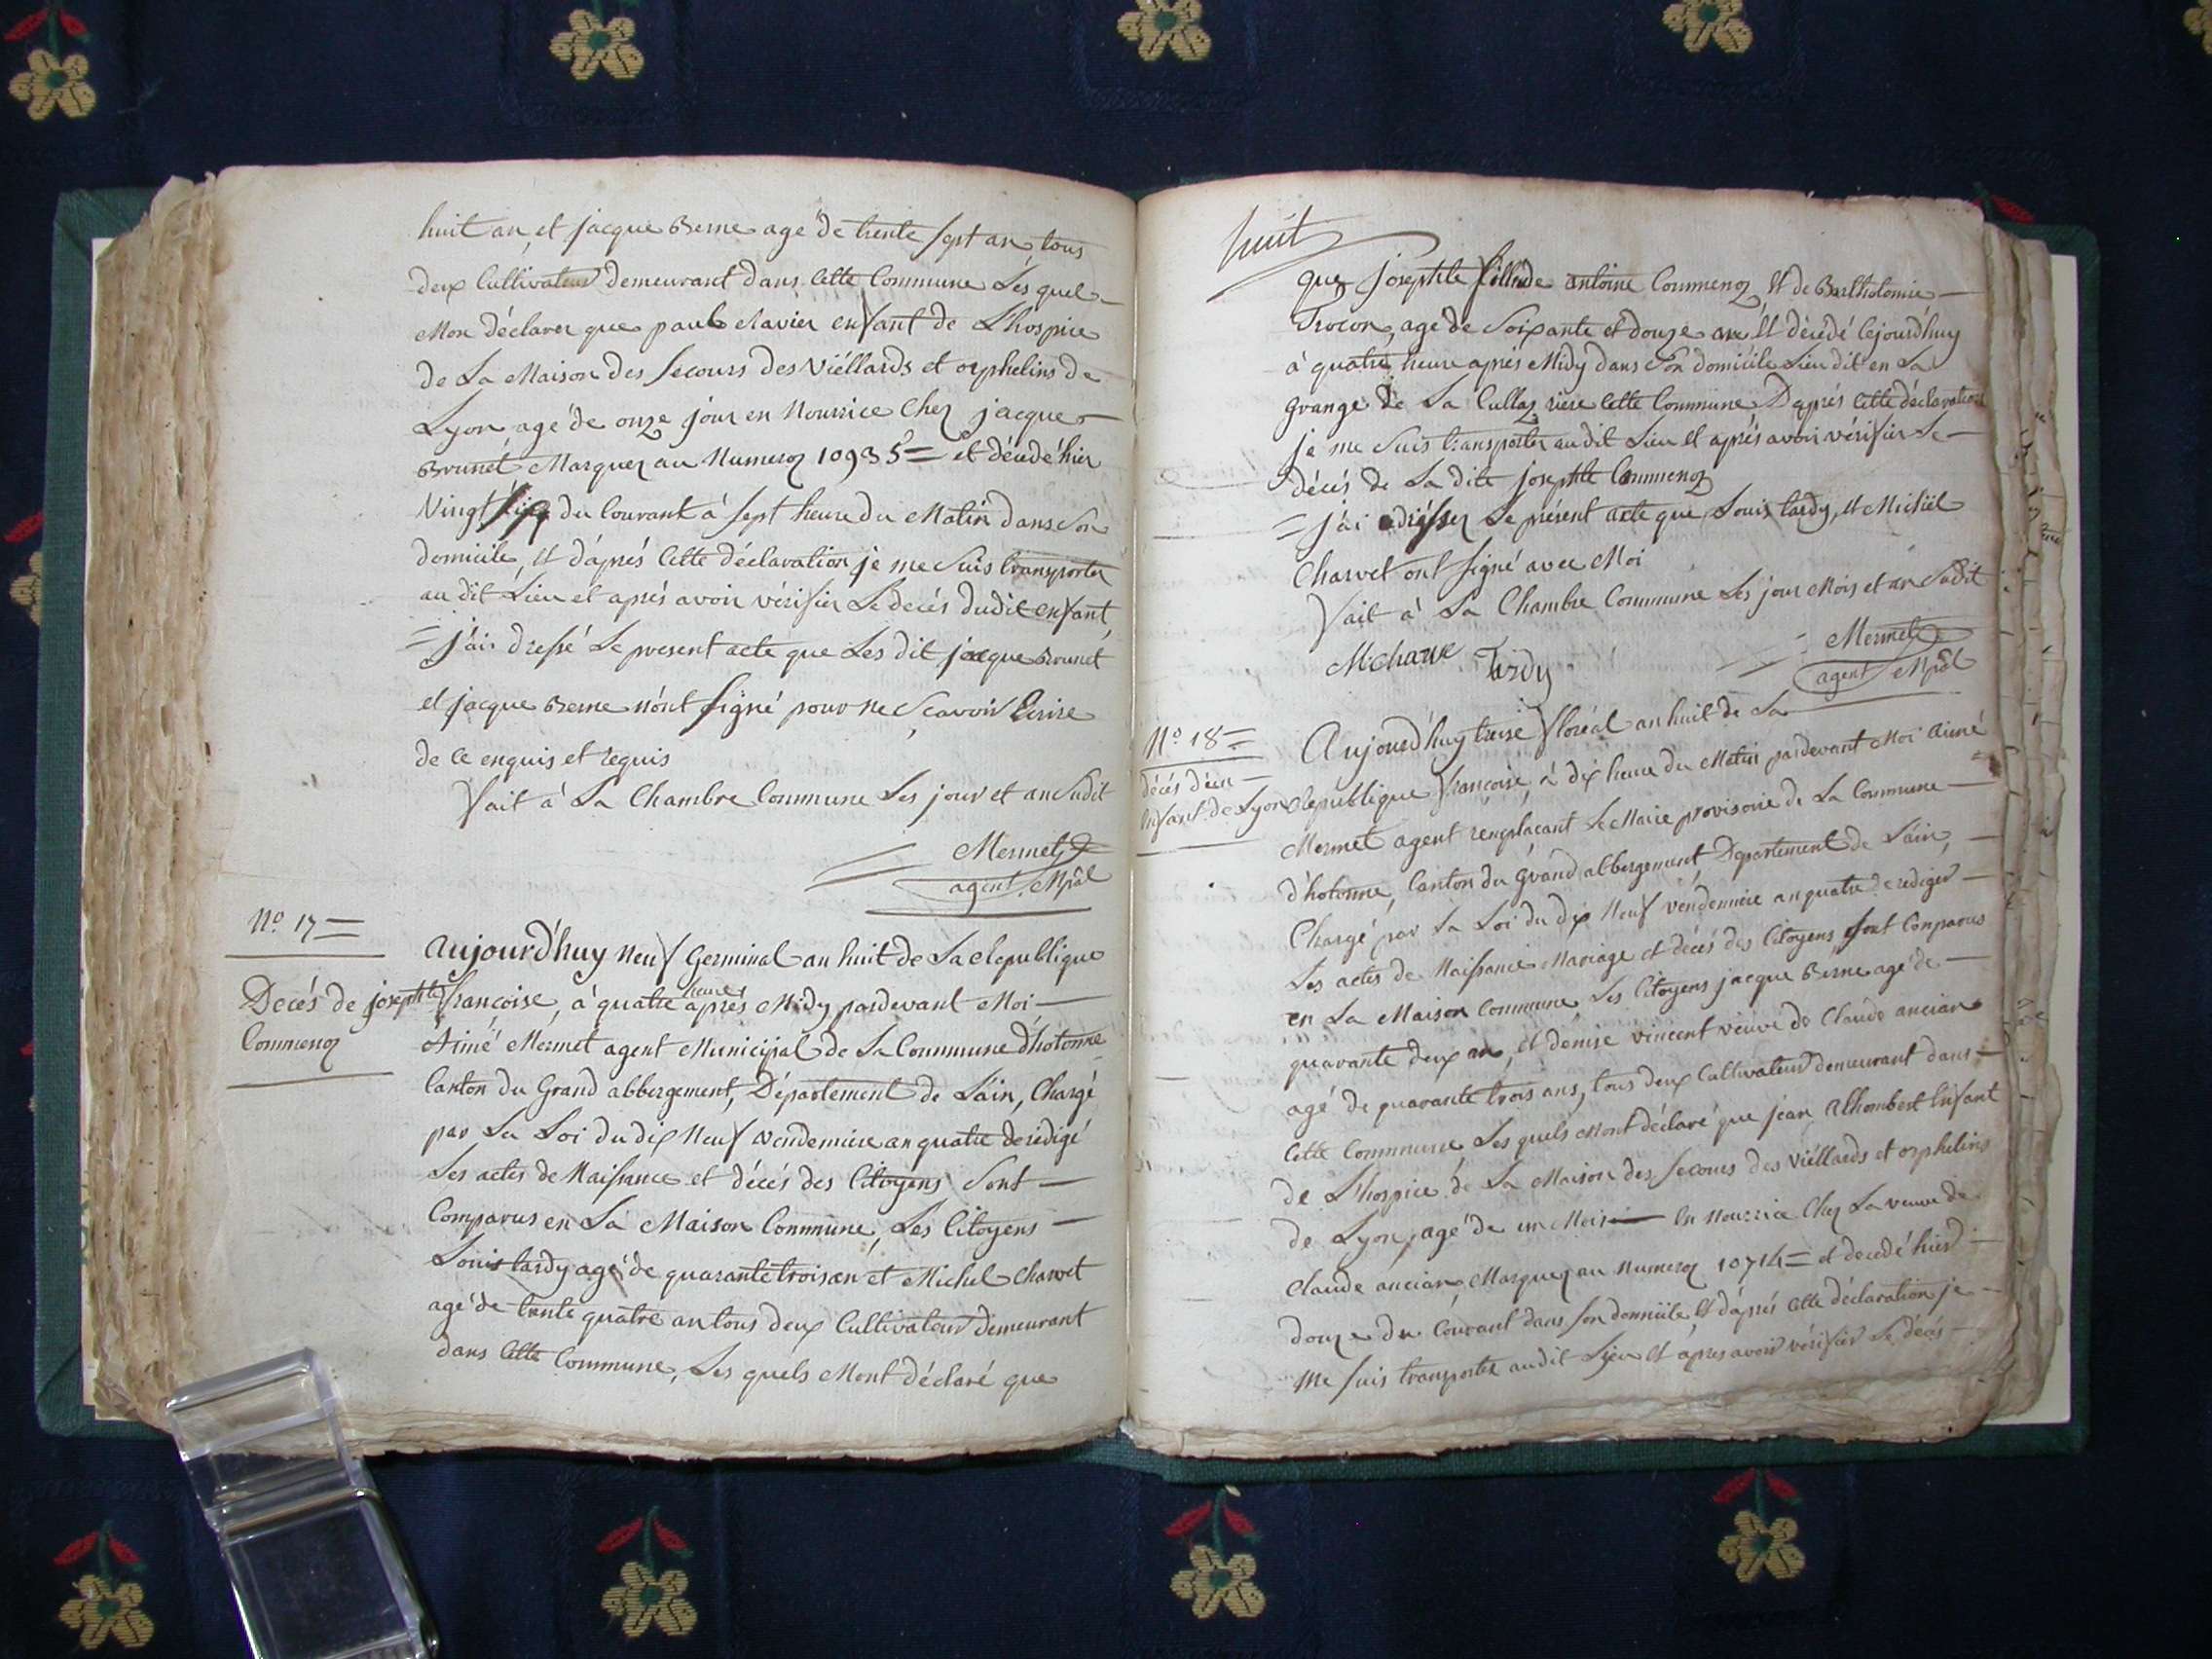 huit an, et jacque Berne agé de trente sept an tous
deux Cultivateur demeurant dans Cette Commune Les quel
Mon déclarer que paul clavier enfant de L'hospice
de La Maison des Secours des Viéllards et orphelins de
Lyon agé de onze jour en Nourrice Chez jacque
Brunet Marquez au Numeroz 10935 = et décédé hier
Vingt du Courant à Sept heure du Matin dans Son
domicile, et d'áprés Cette déclaration je me Suis transporter
au dit Lieu et aprés avoir vérifier Le decés dudit enfant,
= j'ai dressé Le present acte que Les dit jacque Brunet
et jacque Berne n'ont Signé pour ne Scavoir Ecrire
de Ce enquis et requis
fait à La Chambre Commune Les jour et an Sudit
Mermet
agent Mpâl
No. 17 =
Decés de josephte
Commenoz
Aujourd'huy Neuf Germinal an huit de La Republique
françoise, à quatre heures aprés Midy pardevant Moi
Aimé Mermet agent Municipal de La Commune d'hotonne
Canton du Grand abbergement, Département de L'áin, Chargé
par La Loi du dix Neuf vendemiere an quatre de rédigé
Les actes de Naissance et décés des Citoyens Sont
Comparus en La Maison Commune, Les Citoyens
Louis tardy agé de quarante trois an et Michel Charvet
agé de trente quatre an tous deux Cultivateur demeurant
dans Cette Commune, Les quels Mont déclaré que
huit
que josephte fille de antoine Commenoz et de Bartholomie
Trocon, agé de Soixante et douze an et décédé Cejourd'huy
à quatre heure aprés Midy dans Son domicile Lieu dit en La
grange de La Cullaz riere Cette Commune D'aprés Cette déclaration
je me Suis transporter au dit Lieu et aprés avoir vérifier Le
décés de La dite josephte Commenoz
= j'ai adrésser Le présent acte que Louis tardy, et Michiel
Charvet ont Signé avec Moi
fait à La Chambre Commune Les jour Mois et an Sudit
M Charve Tardy
Mermet
agent Mpâl
No. 18 =
décés d'un
Enfant de Lyon
Aujourd'huy treize floréal an huit de La
Republique françoise, à dix heure du Matin pardevant Moi Aimé
Mermet agent remplaçant Le Maire provisoire de La Commune
d'hotonne, Canton du Grand abbergement, Département de L'áin,
Chargé par La Loi du dix Neuf vendemiere an quatre de rediger
Les actes de Naissance Mariage et décés des Citoyens Sont Comparus
en La Maison Commune, Les Citoyens jacque Berne agé de
quarante deux an, et denise vincent veuve de Claude ancian
agé de quarante trois ans, tous deux Cultivateur demeurant dans
Cette Commune Les quels Mont déclaré que jean Alhombert Enfant
de L'hospice de La Maison des Secours des Viéllards et orphelins
de Lyon, agé de un Mois En Nourrice Chez La veuve de
Claude ancian, Marquez au Numeroz 10714 = et decedé hier
douze du Courant dans Son domicile, et d'áprés Cette déclaration je
me Suis transporter au dit Lieu et apres avoir vérifier Le décés